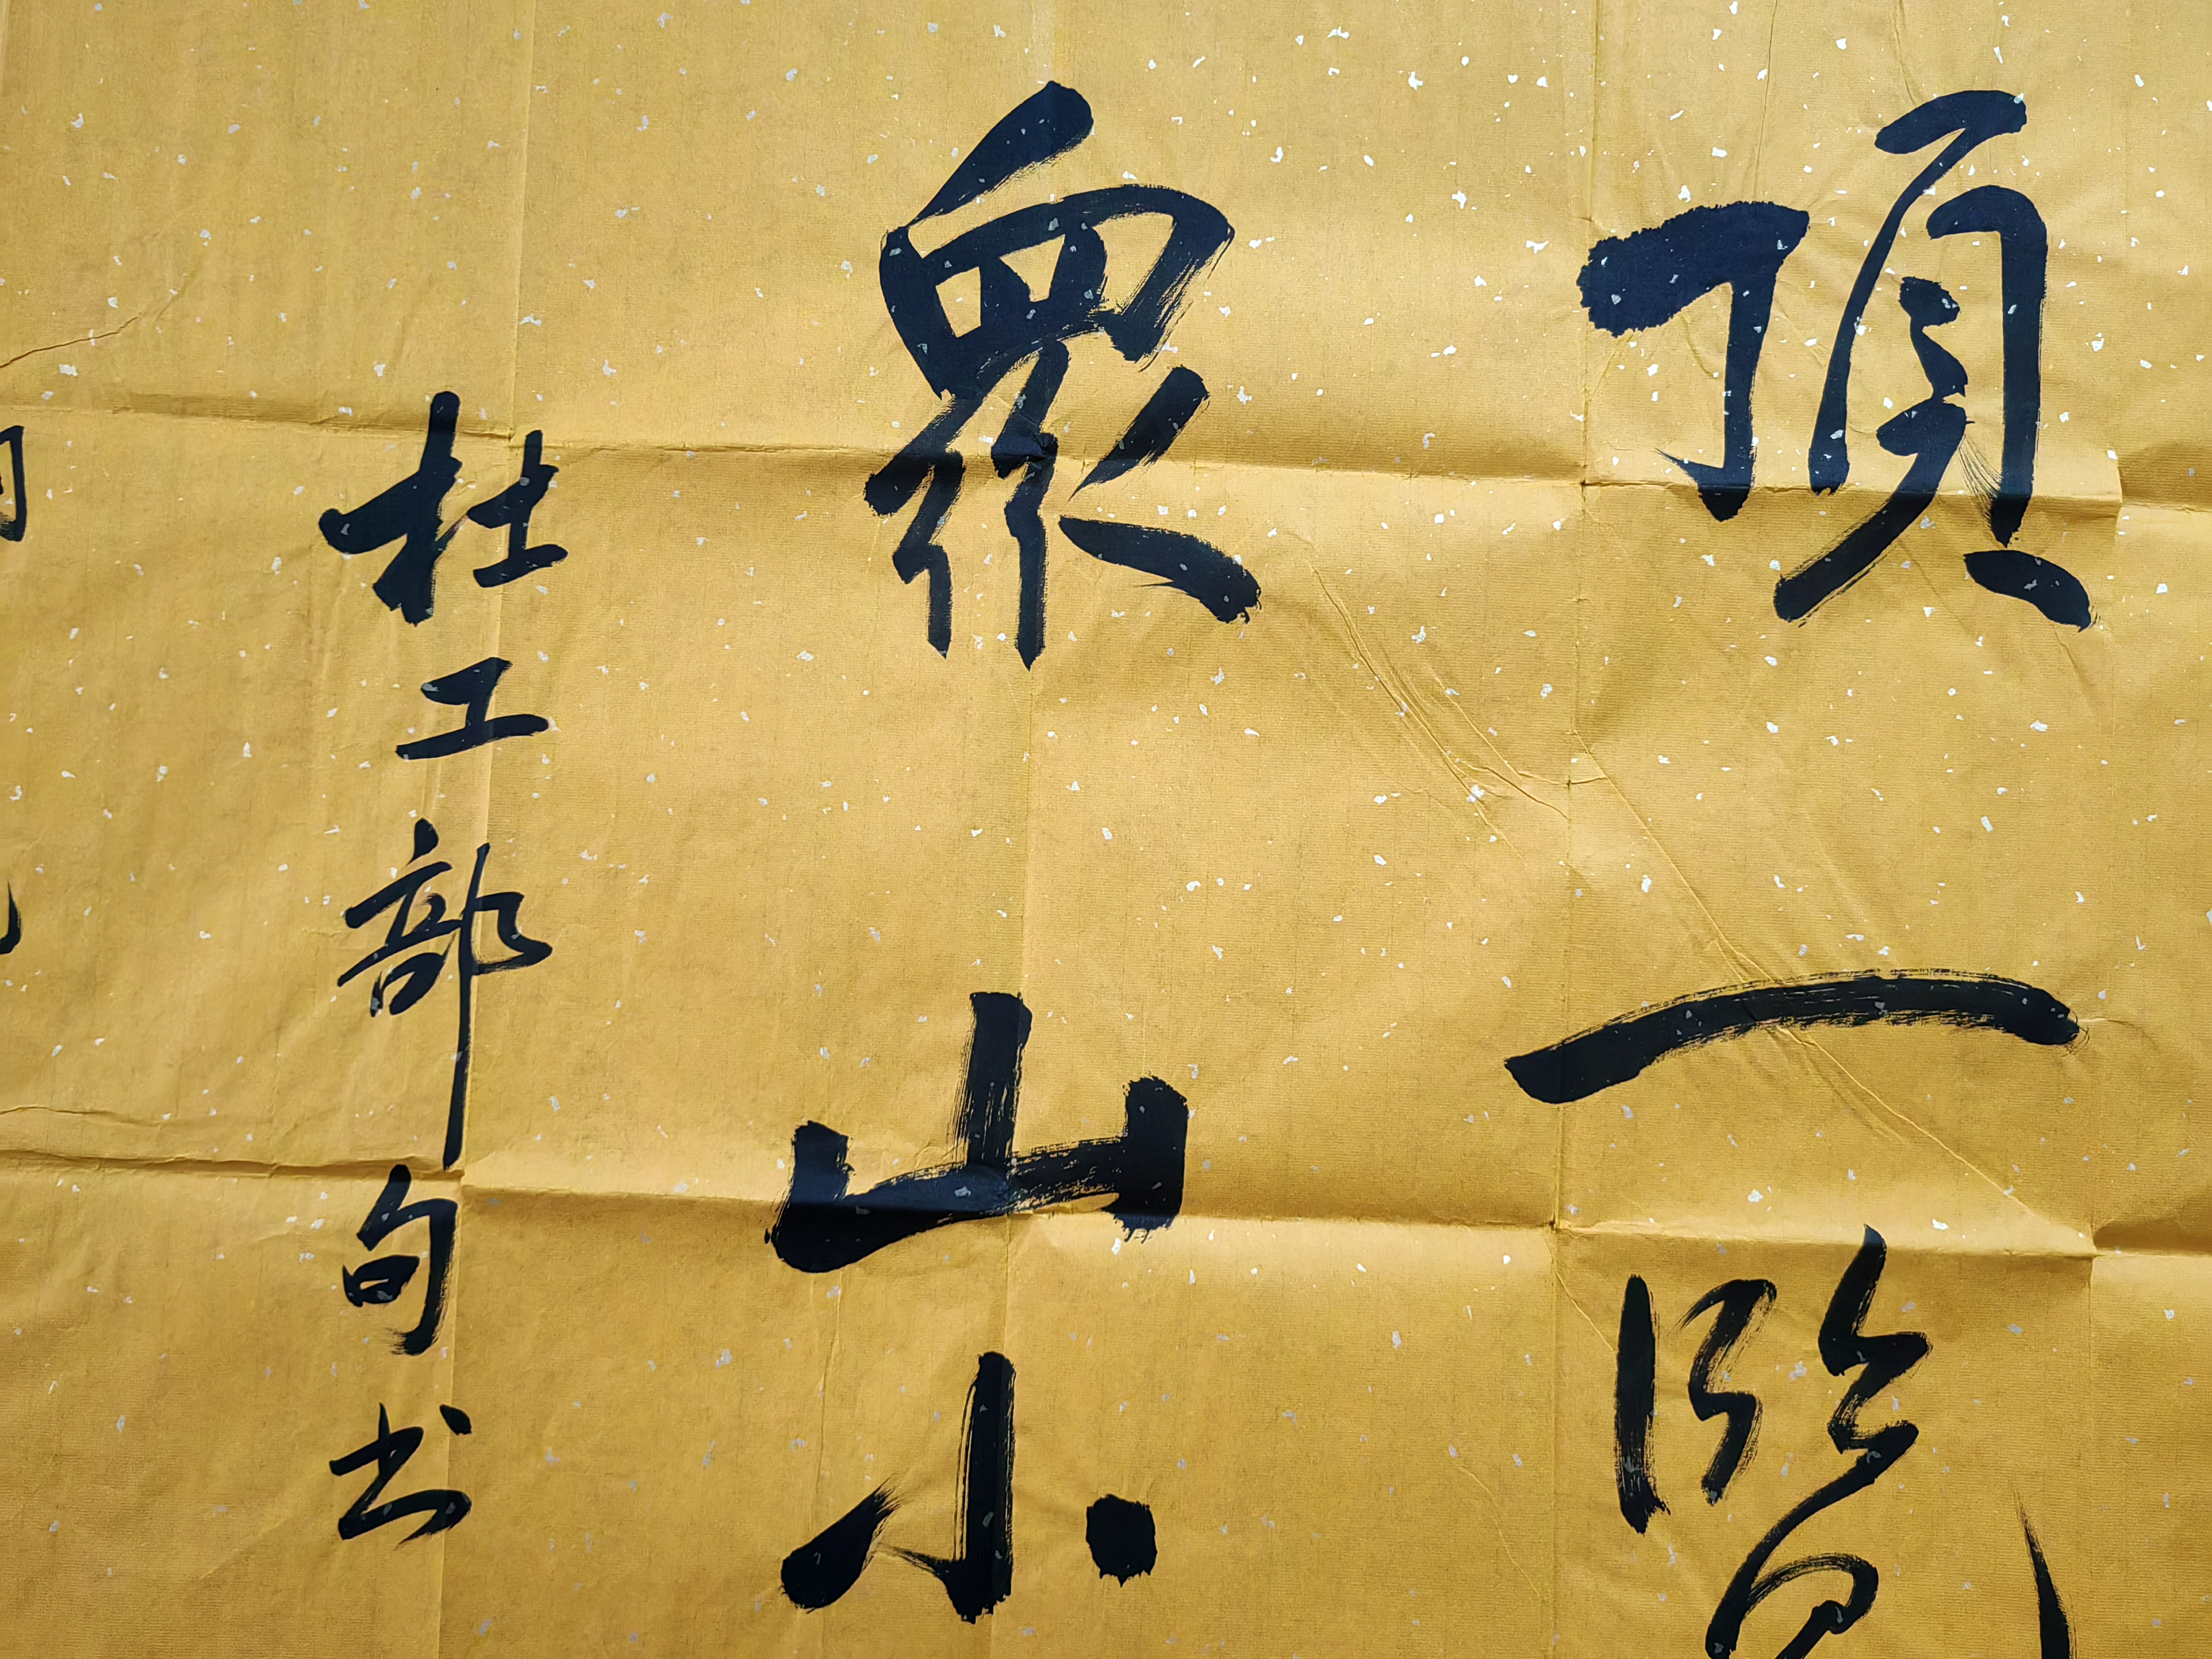 頂一覽
眾山小
杜工部句书